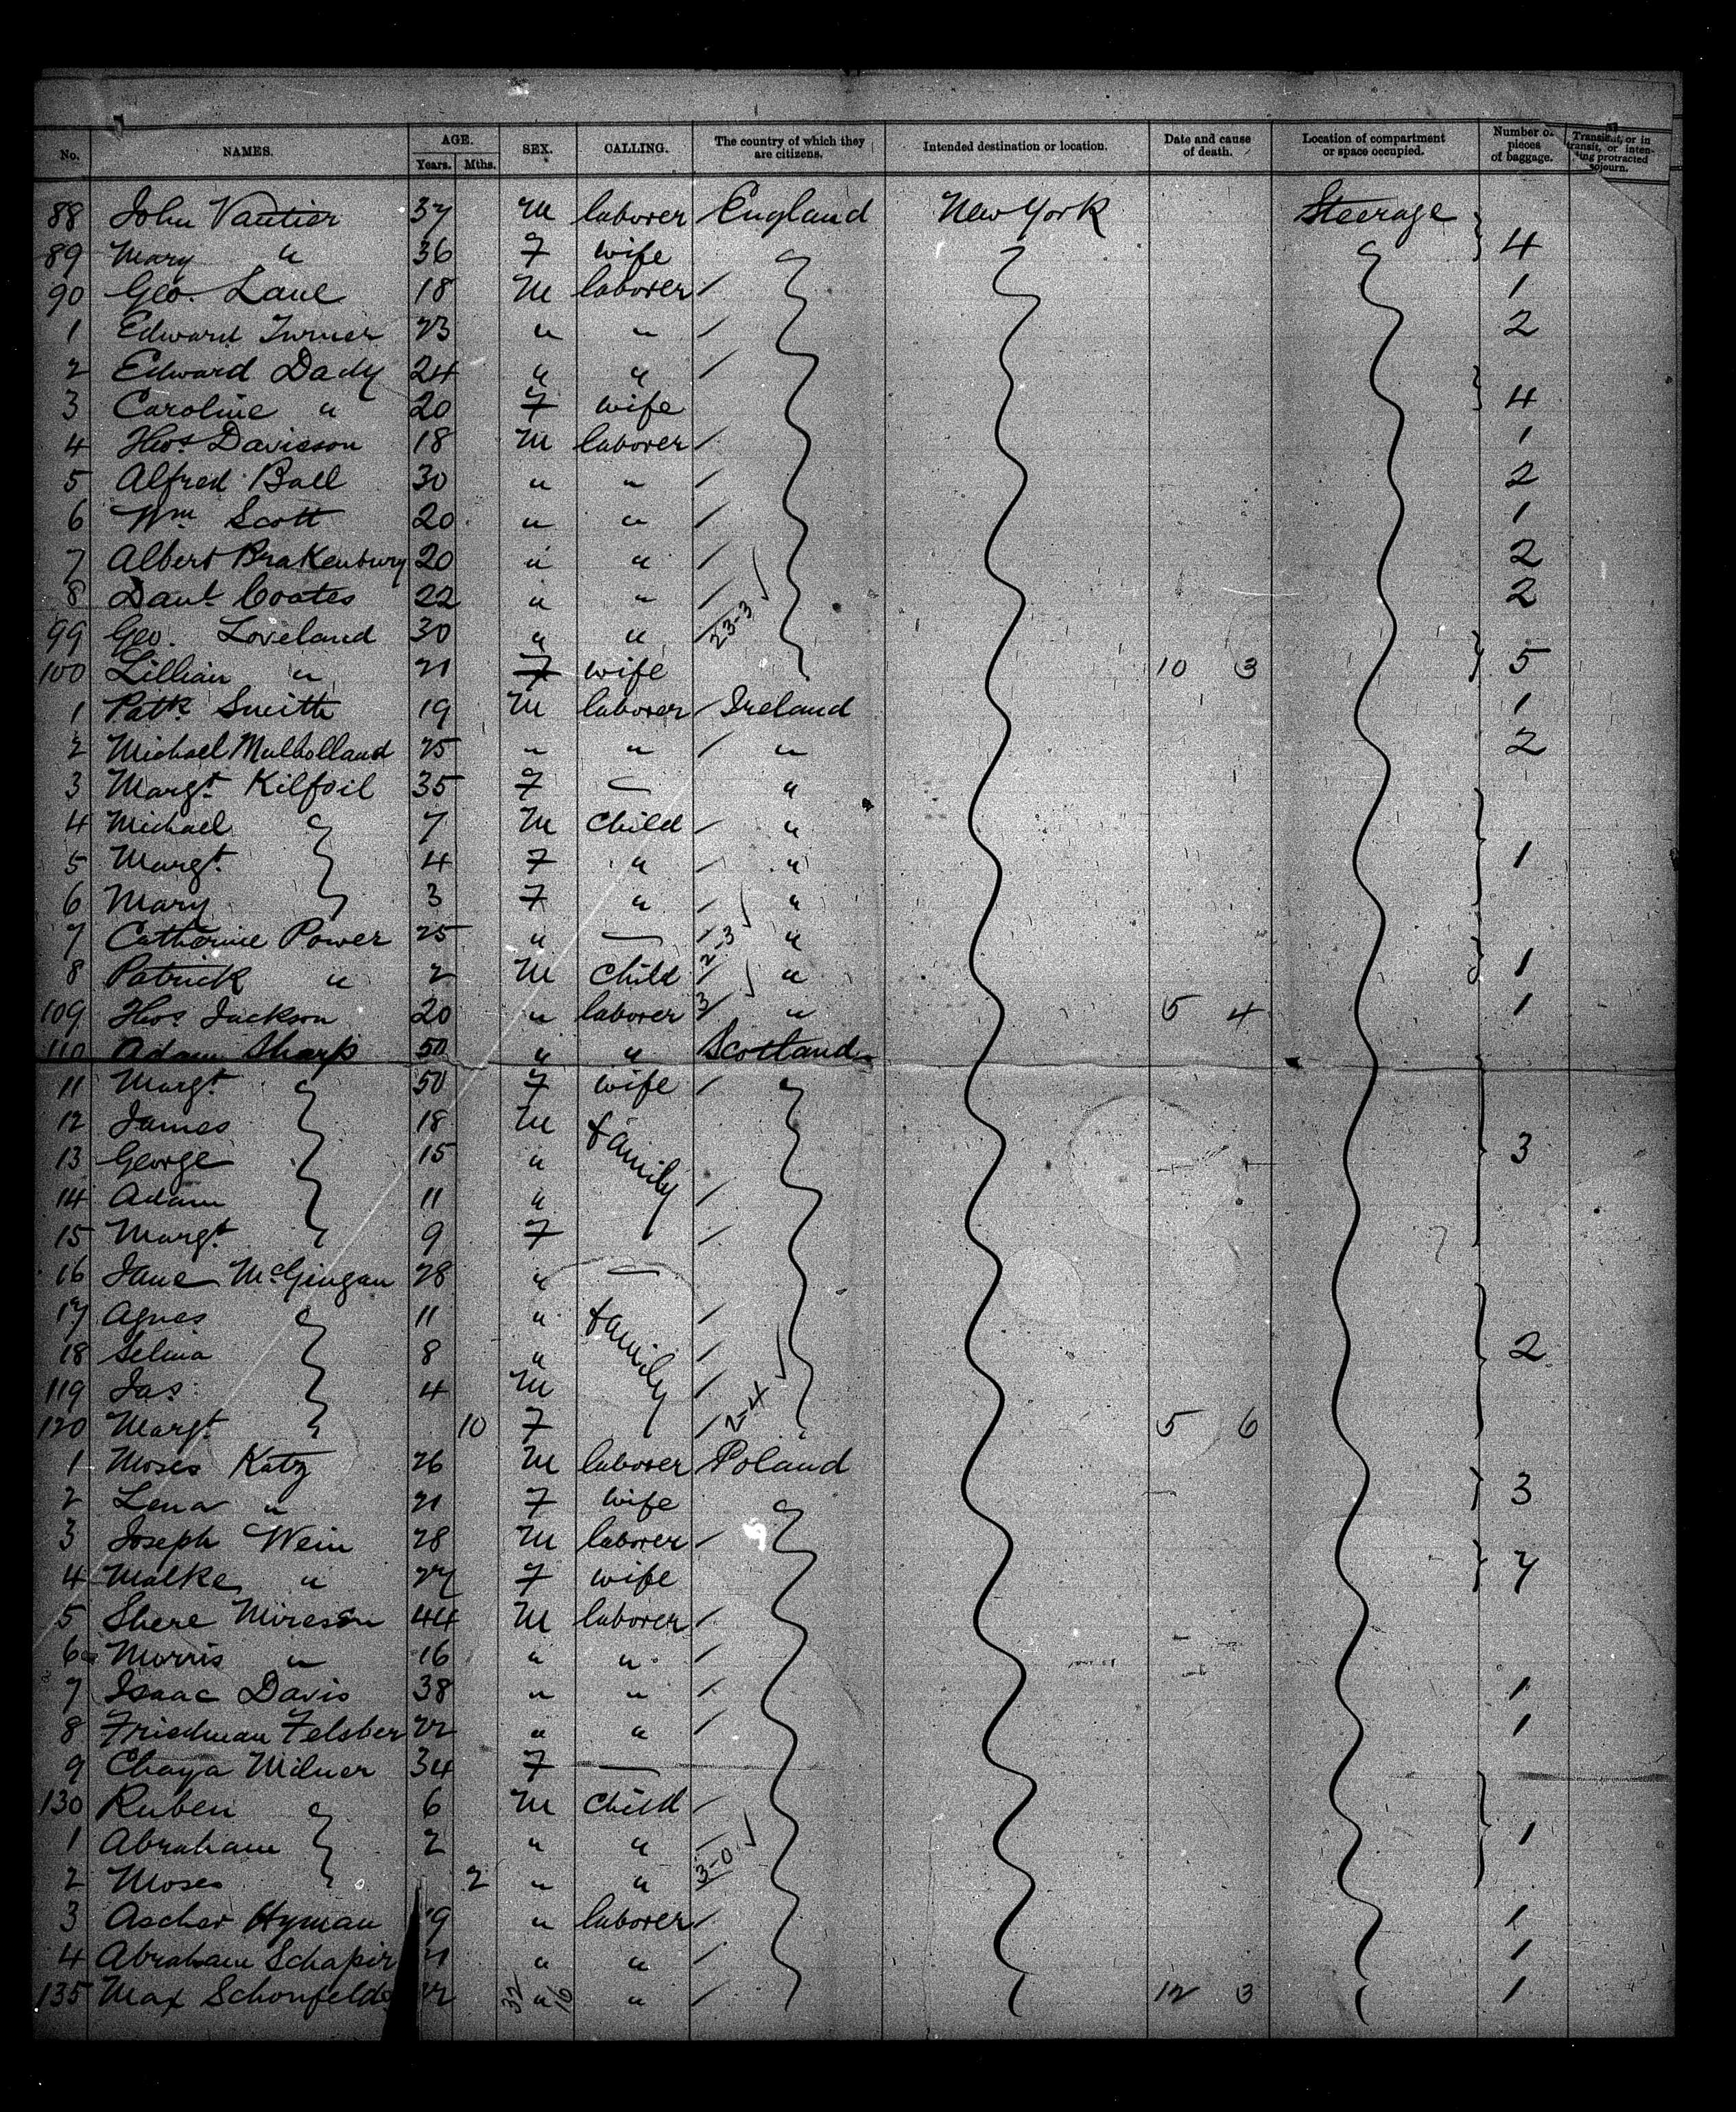 No. NAMES. AGE. Years. Mths. SEX. CALLING. The country of which they are citizens. Intended destination or location. Date and cause of death. Location of compartment or space occupied. Number of pieces of baggage. Transient, or in transit, or intending protracted sojourn.
88 John Vautier 37 M laborer England New York Steerage
89 Mary " 36 F wife 4
90 Geo. Lane 18 M laborer / 1
1 Edward Turner 23 " " / 2
2 Edward Dady 24 " " /
3 Caroline " 20 F wife 4
4 Thos. Davisson 18 M laborer / 1
5 Alfred Ball 30 " " / 2
6 Wm Scott 20 " " / 1
7 Albert Brakenbury 20 " " / 2
8 Danl. Coates 22 " " / 2
99 Geo. Loveland 30 " " / 23-3
100 Lillian " 21 F wife 10 3 5
1 Patk. Smith 19 M laborer / Ireland 1
2 Michael Mulholland 25 " " / " 2
3 Margt. Kilfoil 35 F — "
4 Michael 7 M Child / "
5 Margt. 4 F " / " 1
6 Mary 3 F " / "
7 Catherine Power 25 " — / 2-3 "
8 Patrick " 2 M Child / " 1
109 Thos. Jackson 20 " laborer 3/ " 5 4 1
110 Adam Sharp 50 " " Scotland
11 Margt. 50 F wife /
12 James 18 M family
13 George 15 " 3
14 Adam 11 " /
15 Margt. 9 F /
16 Jane McGingan 28 " —
17 Agnes 11 " family /
18 Selina 8 " / 2
119 Jas. 4 M /
120 Margt. 10 F / 2-4 5 6
1 Moses Katz 26 M laborer Poland
2 Lena " 21 F wife 3
3 Joseph Wein 28 M laborer /
4 Malke " 27 F wife 7
5 Shere Mireson 44 M laborer /
6 Morris " 16 " " /
7 Isaac Davis 38 " " / 1
8 Friedman Felsber 22 " " / 1
9 Chaya Milner 34 F —
130 Ruben 6 M Child /
1 Abraham 2 " " / 1
2 Moses 2 " " 3-0
3 Ascher Hyman 19 " laborer / 1
4 Abraham Schapir 21 " " / 1
135 Max Schonfeld 22 32 " 16 " / 12 3 1